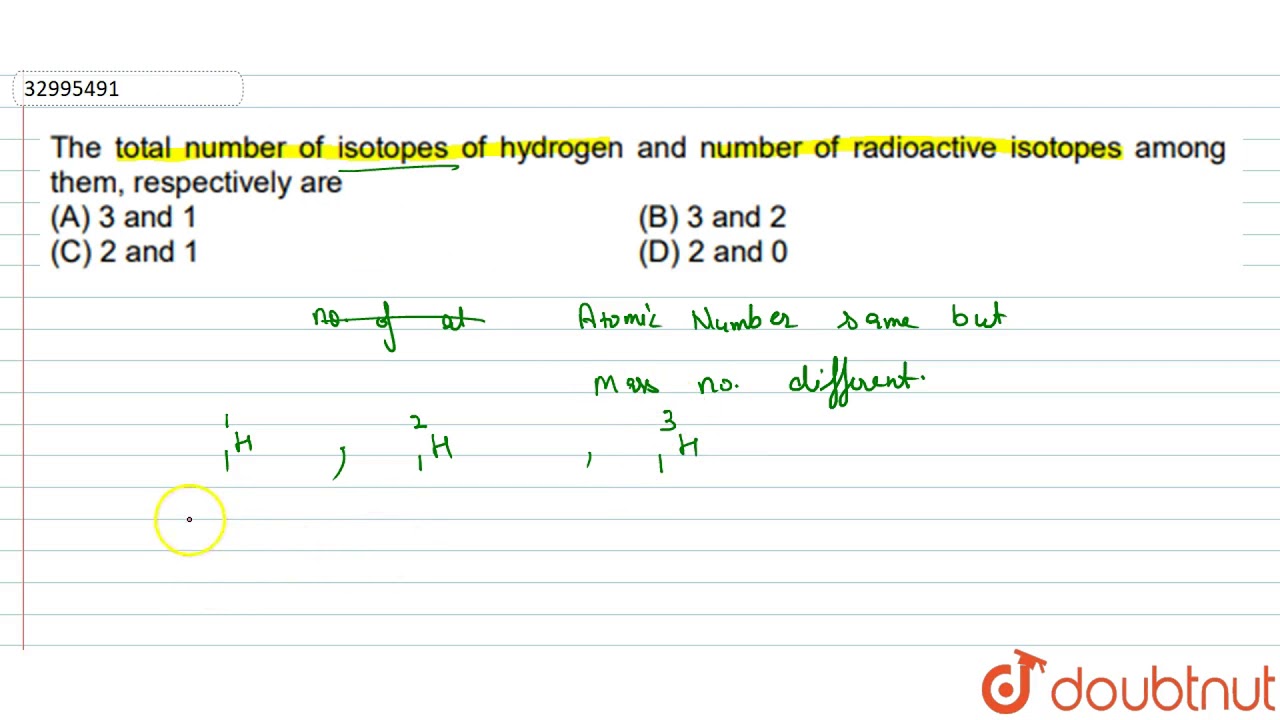 32995491
The total number of isotopes of hydrogen and number of radioactive isotopes among
them, respectively are
(A) 3 and 1 (B) 3 and 2
(C) 2 and 1 (D) 2 and 0
no. of at Atomic Number same but
Mass no. different.
1 2 3
H , H , H
1 1 1
doubtnut